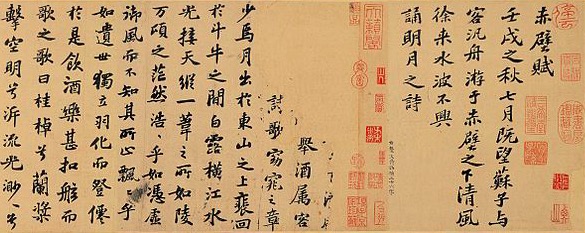 赤壁賦
壬戌之秋七月既望蘇子与
客汎舟游于赤壁之下清風
徐来水波不興
誦明月之詩
舉酒属客
歌窈窕之章
少焉月出於東山之上裵回
於斗牛之間白露橫江水
光接天縱一葦之所如陵
万頃之茫然浩〃乎如憑虛
御風而不知其所止飄〃乎
如遺世獨立羽化而登僊
於是飲酒樂甚扣舷而
歌之歌曰桂棹兮蘭槳
擊空明兮泝流光渺〃兮